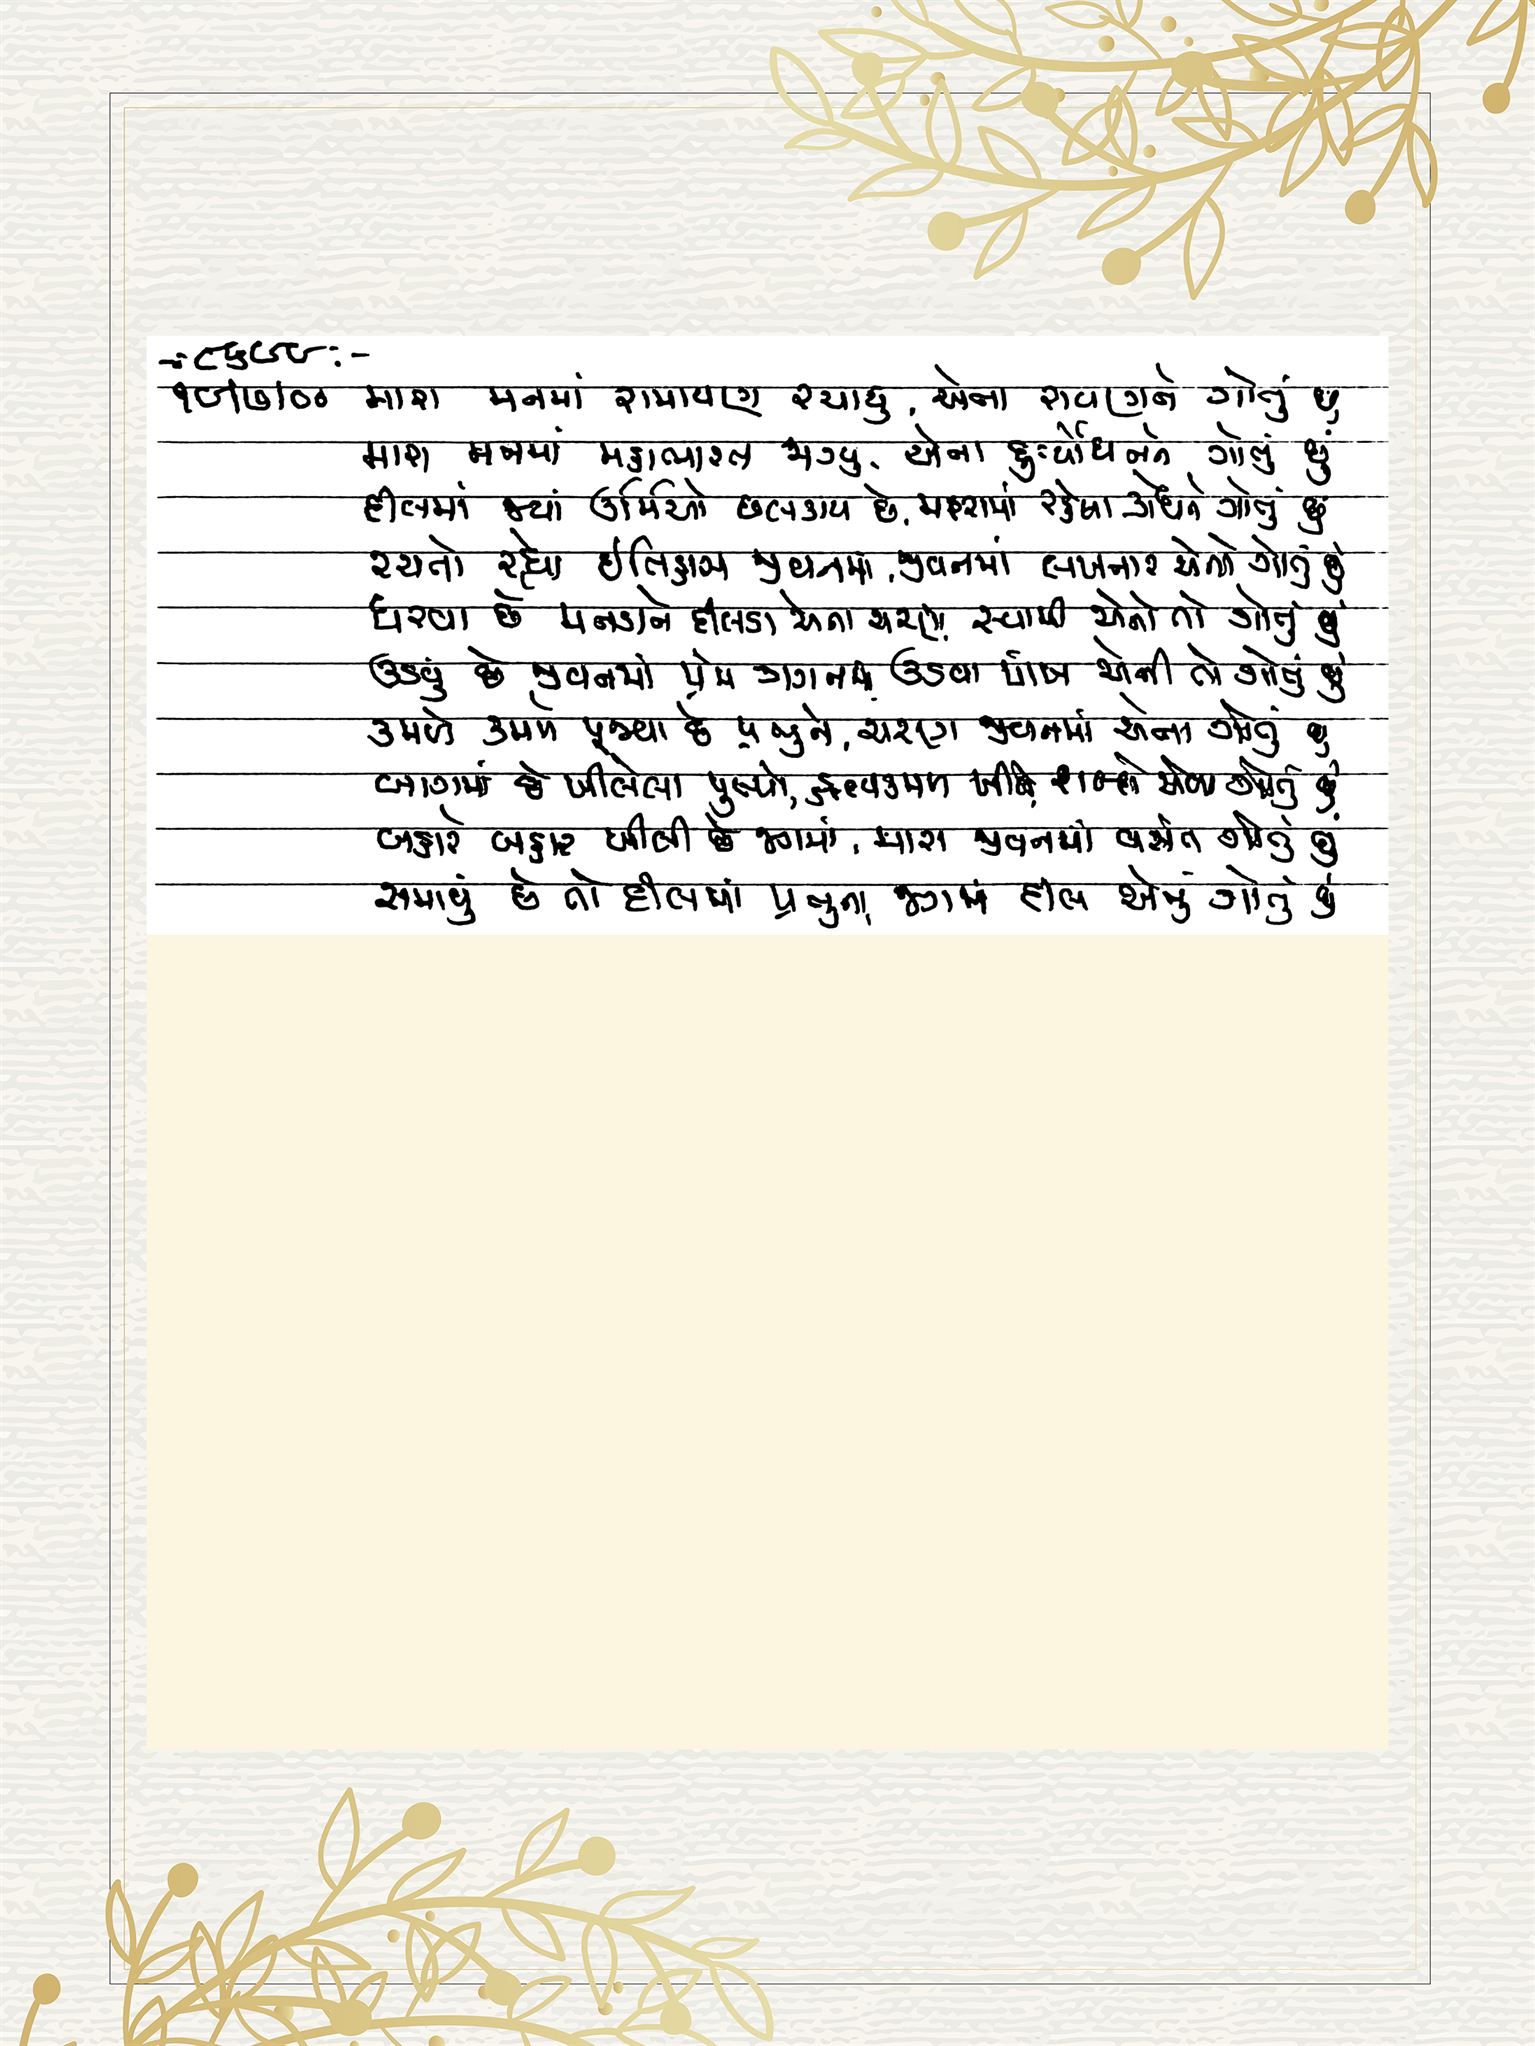 -:૮૬૯૯:-
૧૯/૭/૦૦ મારા મનમાં રામાયણ રચાયુ, એના રાવણને ગોતું છું
મારા મનમાં મહાભારત મચ્યુ, એના દુઃર્યોધનને ગોતું છું
દીલમાં જ્યાં ઉર્મિઓ છલકાય છે, મારામાં રહેલા ગોતું છું
રચતો રહ્યો ઈતિહાસ જીવનમાં, જીવનમાં લખનાર એનો ગોતું છું
ધરવા છે મનડાને દીલડા એના ચરણે, સ્વામી એનો તો ગોતું છું
ઉડવું છે જીવનમાં પ્રેમ ગગનમાં, ઉડવા પાંખ એની તો ગોતું છું
કમળે કમળે પૂજ્યા છે પ્રભુને, ચરણ જીવનમાં એના ગોતું છું
બાગમાં છે ખીલેલા પુષ્પો, હ્રદયકમળ ખીલે, શબ્દો એવા ગોતું છું
બહારે બહાર ખીલી છે જગમાં, મારા જીવનમાં વસંત ગોતું છું
સમાવું છે તો દીલમાં પ્રભુના, જગમાં દીલ એનું ગોતું છું